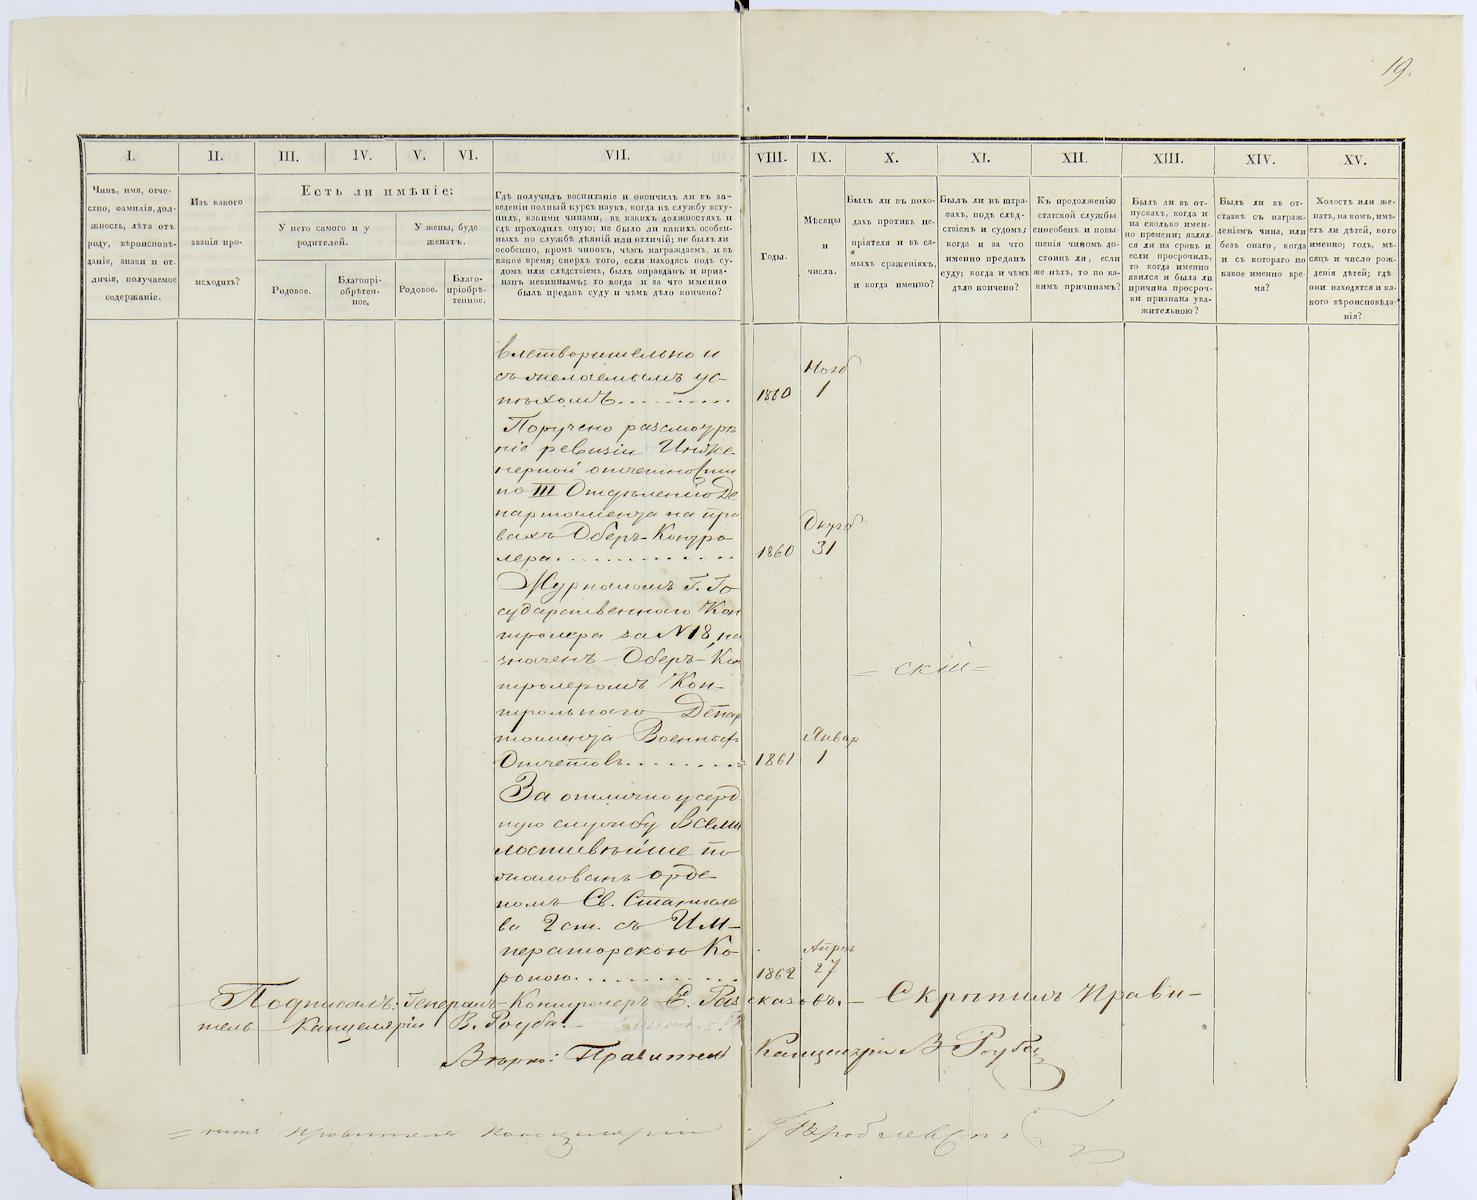 19.
I. II. III. IV. V. VI. VII. VIII. IX. X. XI. XII. XIII. XIV. XV.
Чинъ, имя, отче-
ство, фамилія, дол-
жность, лѣта отъ
роду, вѣроисповѣ-
даніе, знаки и от-
личія, получаемое
содержаніе.
Изъ какого
званія про-
исходитъ?
Есть ли имѣніе:
У него самого и у
родителей.
У жены, буде
женатъ.
Родовое.
Благопрі-
обрѣтен-
ное.
Родовое.
Благо-
пріобрѣ-
тенное.
Гдѣ получилъ воспитаніе и окончилъ ли въ за-
веденіи полный курсъ наукъ, когда въ службу всту-
пилъ, какими чинами, въ какихъ должностяхъ и
гдѣ проходилъ оную; не было ли какихъ особен-
ныхъ по службѣ дѣяній или отличій; не былъ ли
особенно, кромѣ чиновъ, чѣмъ награждаемъ, и въ
какое время; сверхъ того, если находясь подъ су-
домъ или слѣдствіемъ, былъ оправданъ и приз-
нанъ невиннымъ; то когда и за что именно
былъ преданъ суду и чѣмъ дѣло кончено?
Годы.
Мѣсяцы
и
числа.
Былъ ли въ похо-
дахъ противъ не-
пріятеля и въ са-
мыхъ сраженіяхъ,
и когда именно?
Былъ ли въ штра-
фахъ, подъ слѣд-
ствіемъ и судомъ;
когда и за что
именно преданъ
суду; когда и чѣмъ
дѣло кончено?
Къ продолженію
статской службы
способенъ и повы-
шенія чиномъ до-
стоинъ ли, если
же нѣтъ, то по ка-
кимъ причинамъ?
Былъ ли въ от-
пускахъ, когда и
на сколько имен-
но времени; являл-
ся ли на срокъ и
если просрочилъ,
то когда именно
явился и была ли
причина просроч-
ки признана ува-
жительною?
Былъ ли въ от-
ставкѣ съ награж-
деніемъ чина, или
безъ онаго, когда
и съ котораго по
какое именно вре-
мя?
Холостъ или же-
натъ, на комъ, имѣ-
етъ ли дѣтей, кого
именно; годъ, мѣ-
сяцъ и число рож-
денія дѣтей; гдѣ
они находятся и ка-
кого вѣроисповѣда-
нія?
влетворительно и
съ желаемымъ ус-
пѣхомъ 1860 Нояб 1
Поручено разсмотрѣ
ніе ревизіи Инже-
нерной отчетности
по III Отдѣленію Де
партамента на пра
вахъ Оберъ-Контро
лера 1860 Октяб 31
Журналомъ Г. Го
сударственнаго Кон
тролера за N 18, на
значенъ Оберъ-Кон
тролеромъ Кон-
трольнаго Депар
тамента Военныхъ
Отчетовъ 1861 Январ 1
= скій =
За отлично усерд
ную службу Всеми
лостивѣйше по
жалованъ орде
номъ Св. Станисла
ва 2 ст. съ Им-
ператорскою Ко
роною 1862 Апрѣл 27
Подписалъ: Генералъ-Контролеръ Е. Разсказовъ. – Скрѣпилъ Прави-
тель Канцеляріи В. Роуба. –
Вѣрно: Правитель Канцеляріи В Роуба
= Правителя Канцеляріи